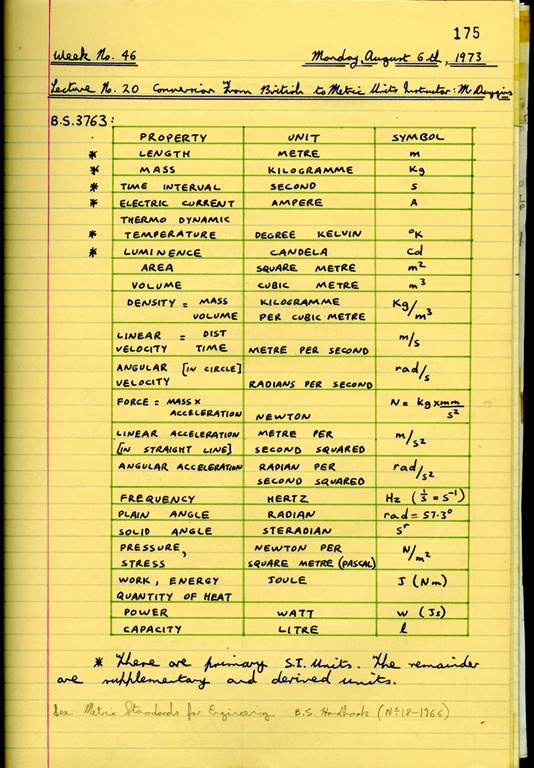 175
Week No. 46 Monday, August 6th, 1973
Lecture No. 20 Conversion From British to Metric Units Instructor: Mr Duggins
B.S.3763:
PROPERTY UNIT SYMBOL
* LENGTH METRE m
* MASS KILOGRAMME Kg
* TIME INTERVAL SECOND S
* ELECTRIC CURRENT AMPERE A
THERMO DYNAMIC
* TEMPERATURE DEGREE KELVIN °K
* LUMINENCE CANDELA Cd
AREA SQUARE METRE m²
VOLUME CUBIC METRE m³
DENSITY = MASS KILOGRAMME Kg/m³
VOLUME PER CUBIC METRE
LINEAR = DIST m/s
VELOCITY TIME METRE PER SECOND
ANGULAR [IN CIRCLE] rad/s
VELOCITY RADIANS PER SECOND
FORCE = MASS X N = Kg x mm/s²
ACCELERATION NEWTON
LINEAR ACCELERATION METRE PER m/s²
[IN STRAIGHT LINE] SECOND SQUARED
ANGULAR ACCELERATION RADIAN PER rad/s²
SECOND SQUARED
FREQUENCY HERTZ Hz (1/S = S⁻¹)
PLAIN ANGLE RADIAN rad = 57.3°
SOLID ANGLE STERADIAN Sʳ
PRESSURE, NEWTON PER N/m²
STRESS SQUARE METRE (PASCAL)
WORK, ENERGY JOULE J (Nm)
QUANTITY OF HEAT
POWER WATT W (Js)
CAPACITY LITRE l
* These are primary S.I. Units. The remainder
are supplementary and derived units.
See Metric Standards for Engineering B.S. Handbook (Nº18-1966)